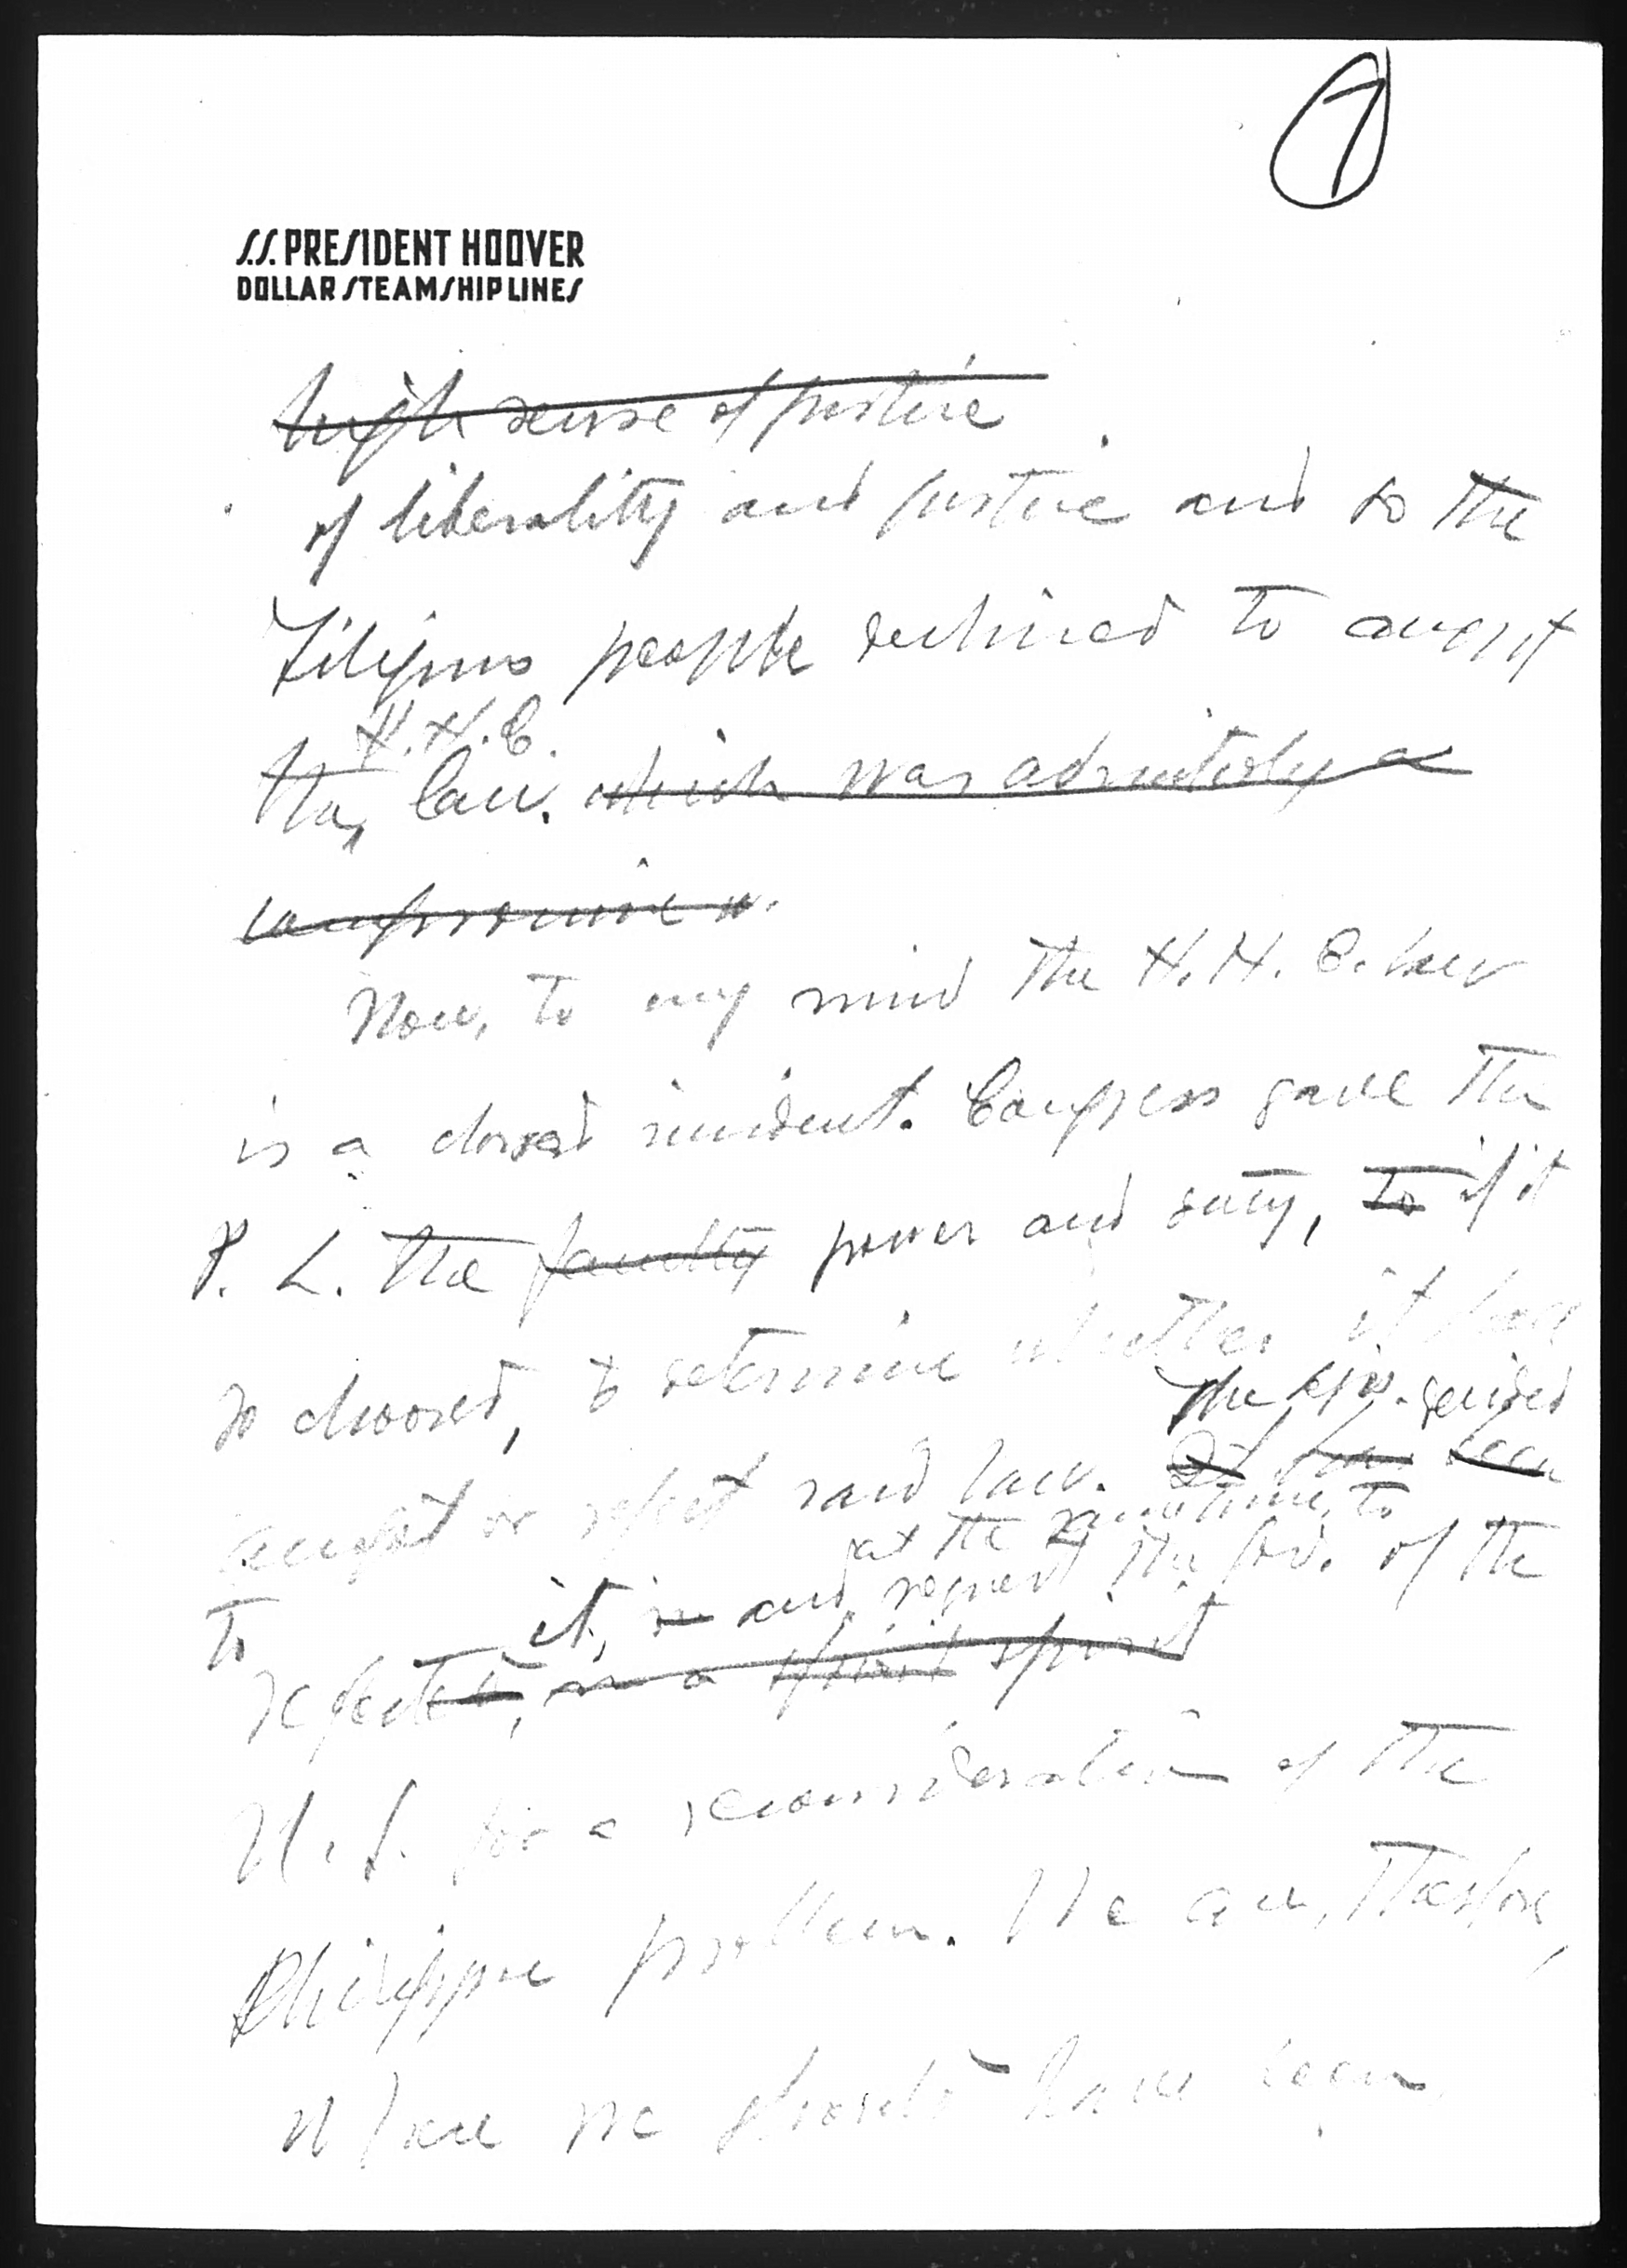 7
S.S. PRESIDENT HOOVER
DOLLAR STEAMSHIP LINES
high sense of justice
of liberality and justice and so the
Filipino people declined to accept
H.H.C.
the law. which was admittedly a
compromise
Now, to my mind the H.H.C. law
is a closed incident. Congress gave the
P. L. the faculty power and duty, to if it
so choosed, to determine whether it
The decided
accept or reject said law. It has been
at the same time, to
To it, and request the Gov. of the
rejected, in a spirit spirit
U.S. for a reconsideration of the
Philippine problem. We are, therefore,
where we should have been